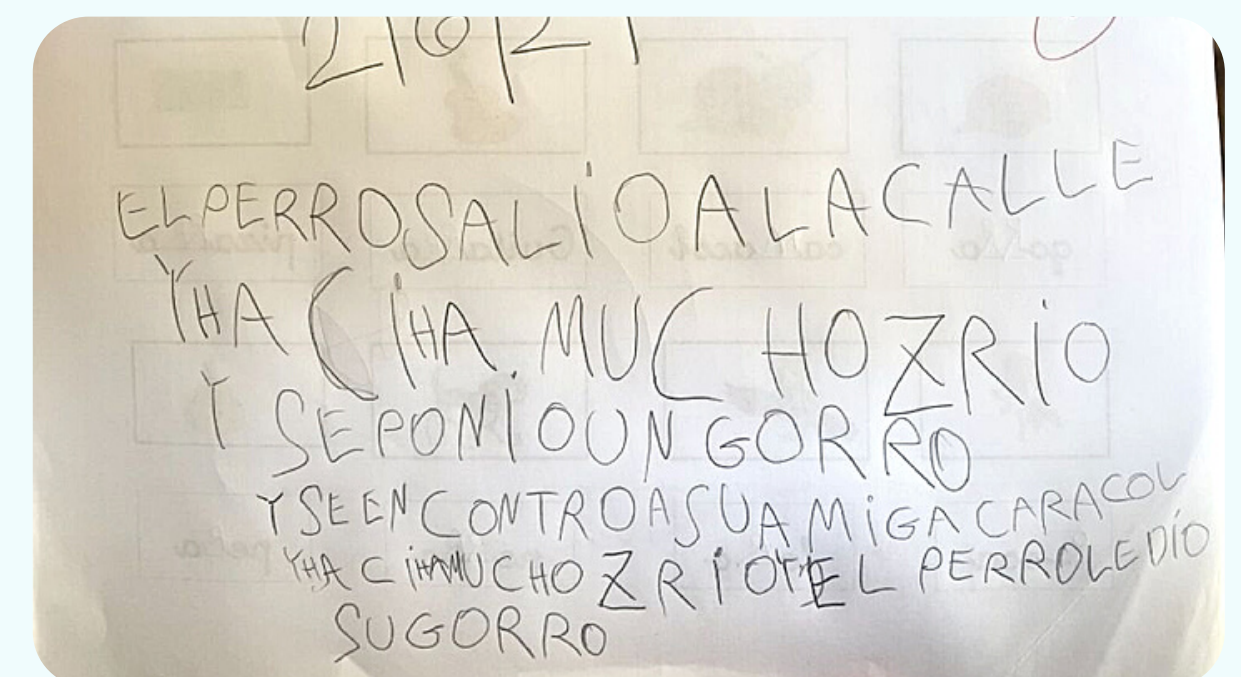 2|6|21
ELPERROSALiOALACALLE
YHACiHA MUCHOZRiO
Y SEPONiOUNGORRO
YSEENCONTROASUAMiGACARACOL
YHACiHAMUCHOZRiOYEL PERROLEDiO
SUGORRO